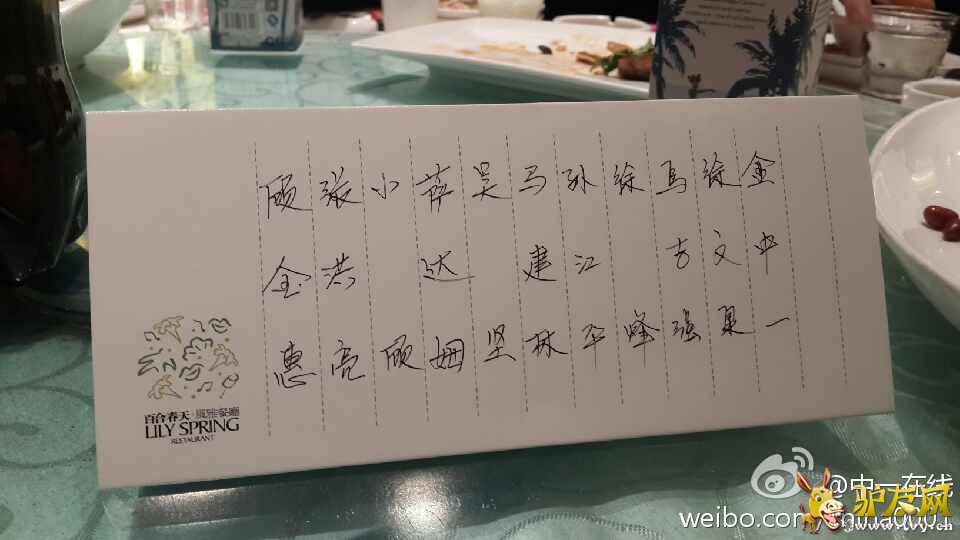 顾金惠
张洪亮
小顾
萨达姆
吴坚
马建林
孙江平
徐峰
马方强
徐文
金中一
百合春天·風雅餐廳
LILY SPRING
RESTAURANT
@中一在线
weibo.com
驴友网